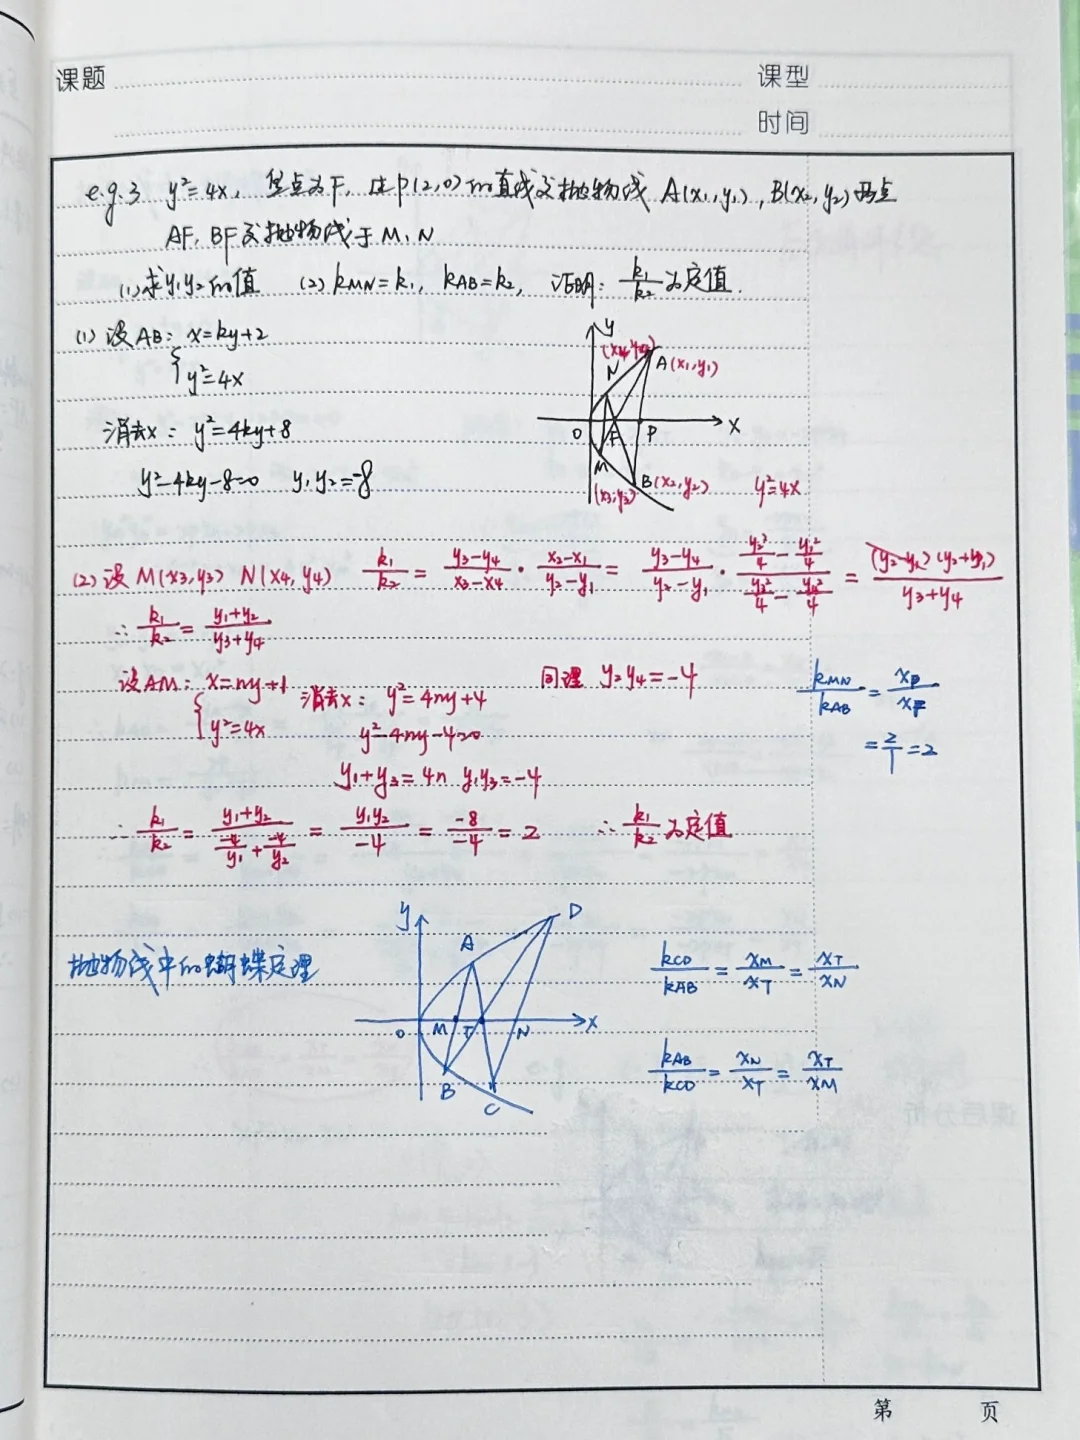 课题
课型
时间
e.g.3 y²=4x, 焦点为F, 过P(2,0)的直线交抛物线 A(x₁,y₁), B(x₂,y₂)两点
AF, BF交抛物线于M,N
(1)求y₁y₂的值 (2) kMN=k₁, kAB=k₂, 证明: k₁/k₂为定值.
(1) 设AB: x=ky+2
y²=4x
消去x: y²=4ky+8
y²-4ky-8=0 y₁y₂=-8
y
(x4,y4)
N
A(x₁,y₁)
O F P x
M
B(x₂,y₂)
(x₃,y₃)
y²=4x
(2) 设M(x₃,y₃) N(x₄,y₄) k₁/k₂ = (y₃-y₄)/(x₃-x₄) · (x₂-x₁)/(y₂-y₁) = (y₃-y₄)/(y₂-y₁) · (y₂²/4 - y₁²/4)/(y₃²/4 - y₄²/4) = (y₂-y₁)(y₂+y₁)/(y₃+y₄)
∴ k₁/k₂ = (y₁+y₂)/(y₃+y₄)
设AM: x=ny+1 消去x: y²=4ny+4 同理 y₂y₄=-4
y²=4x y²-4ny-4=0
y₁+y₃=4n y₁y₃=-4
kMN/kAB = xP/xF
=2/1=2
∴ k₁/k₂ = (y₁+y₂)/(-4/y₁ + -4/y₂) = y₁y₂/-4 = -8/-4 = 2 ∴ k₁/k₂为定值
抛物线中的蝴蝶定理
y
D
A
O M T N x
B
C
kCD/kAB = xM/xT = xT/xN
kAB/kCD = xN/xT = xT/xM
第 页